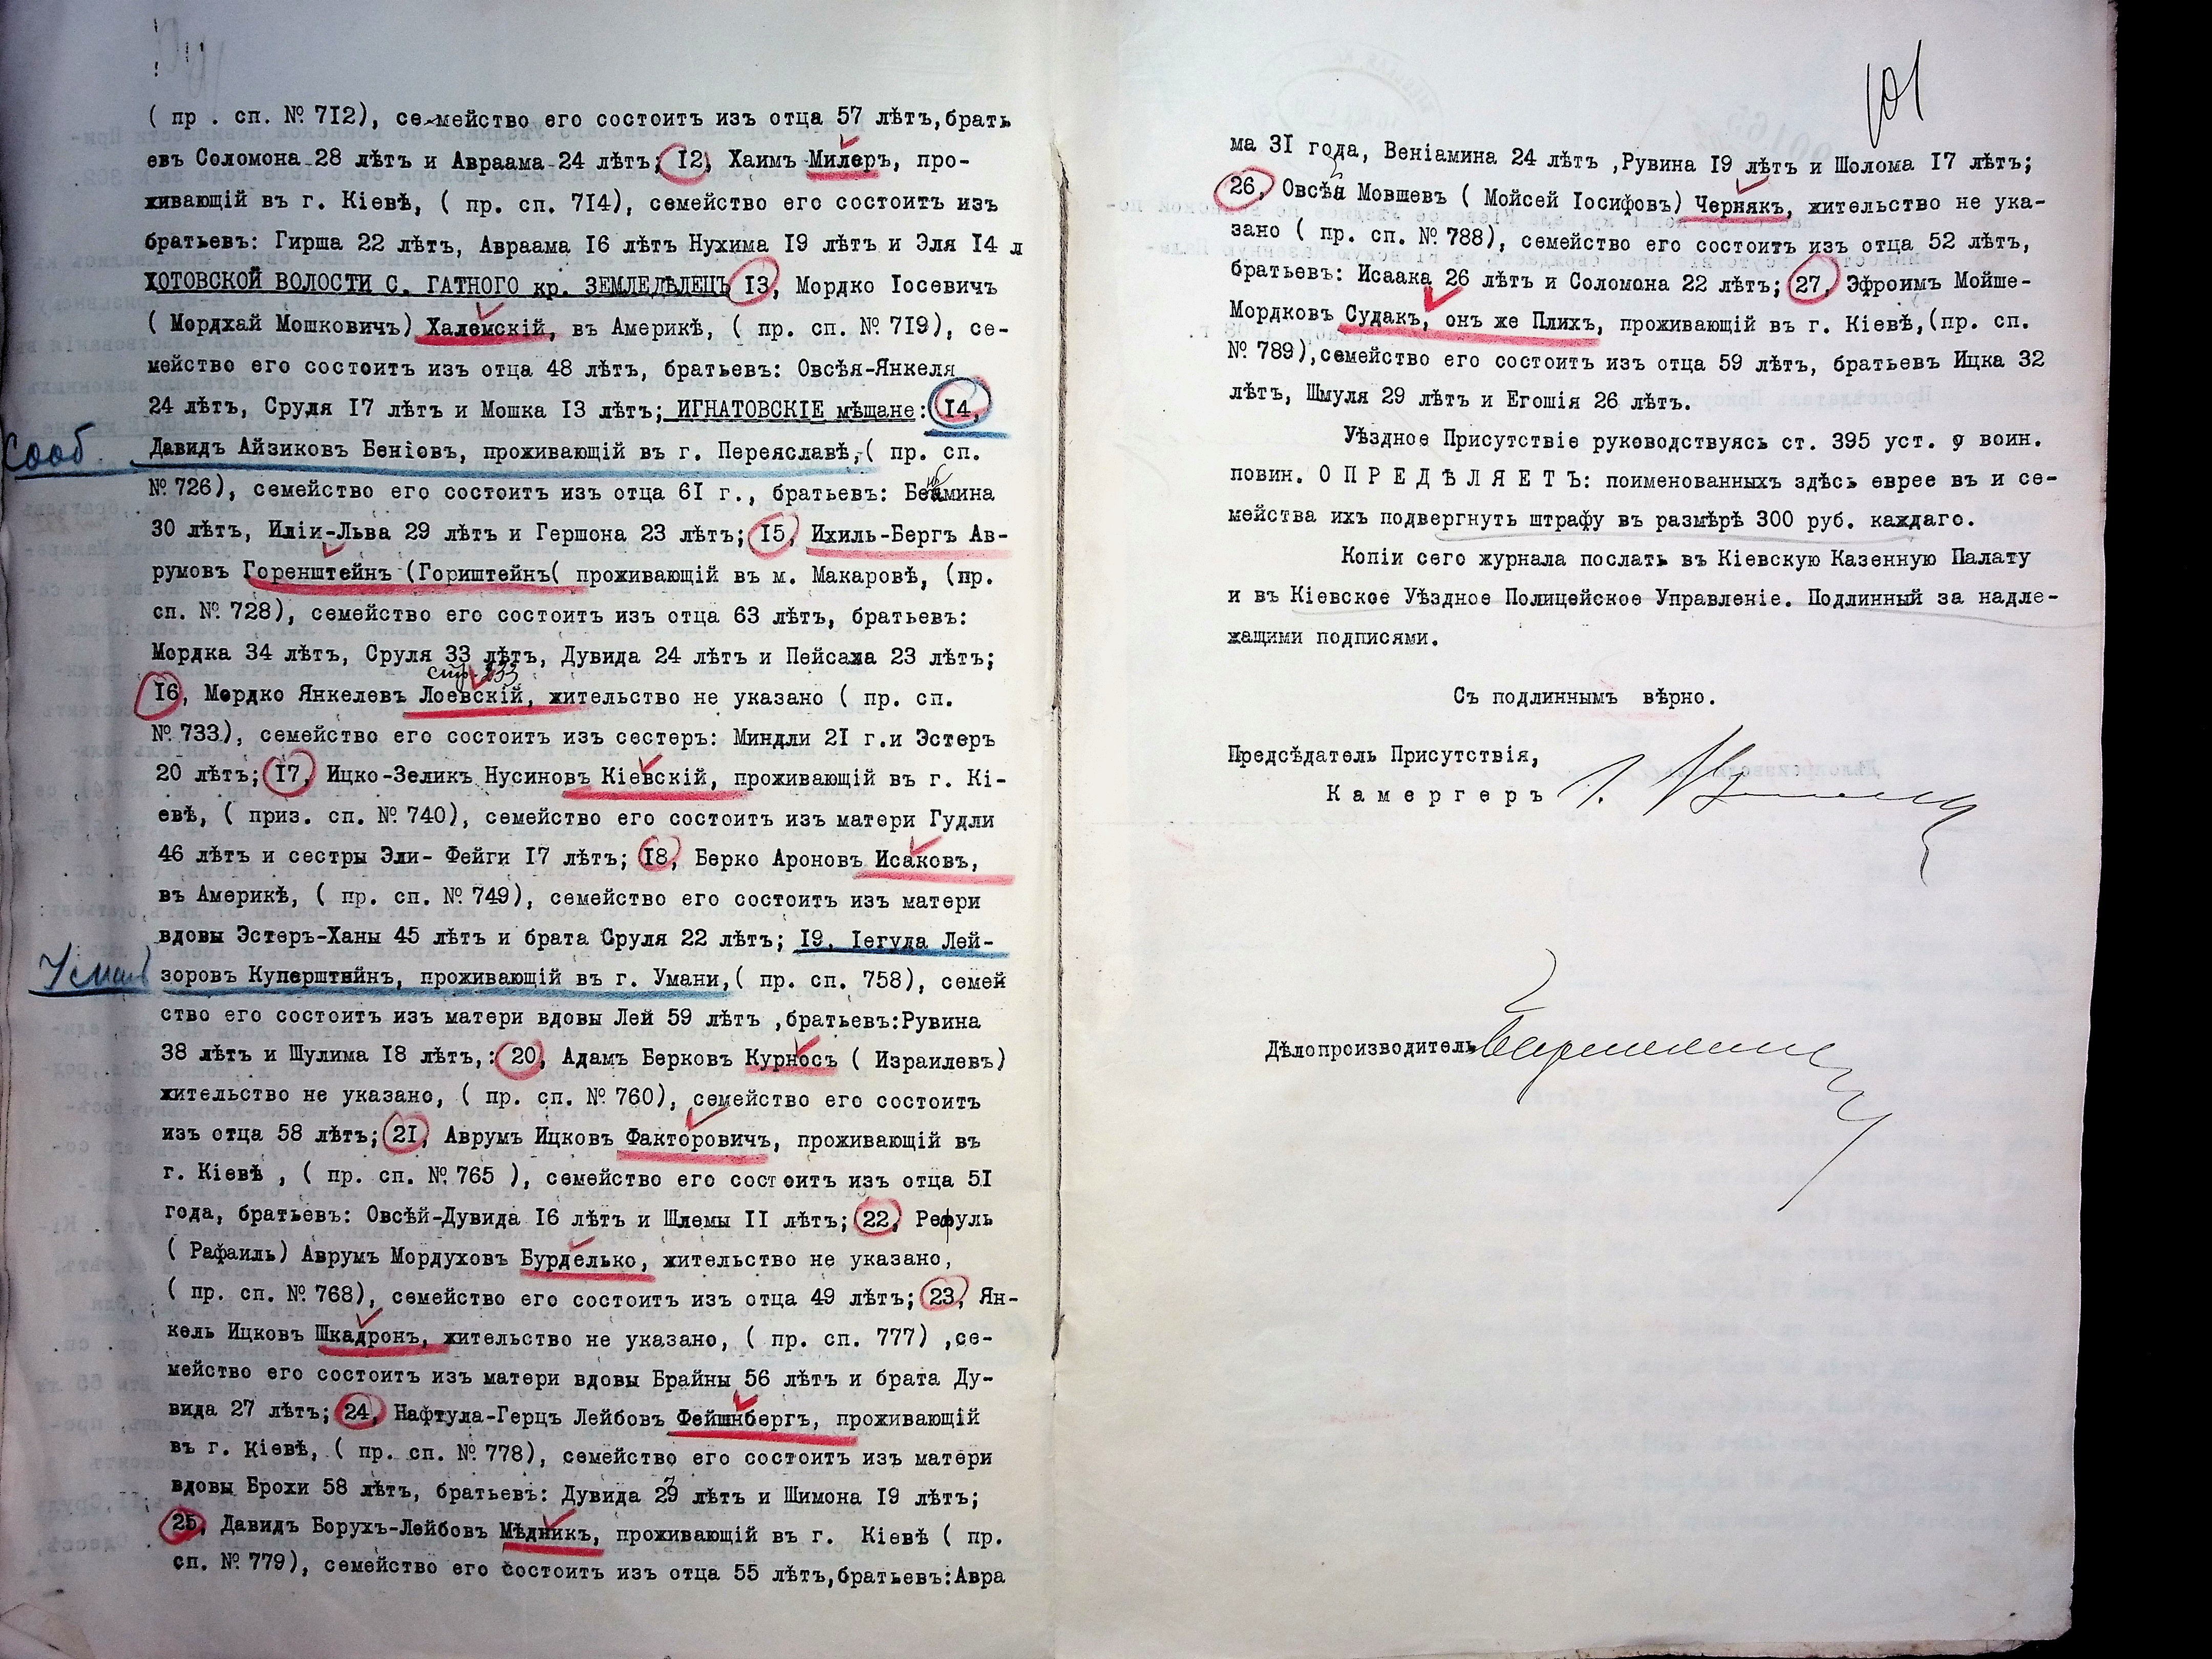 ( пр . сп. № 7I2), семейство его состоитъ изъ отца 57 лѣтъ,брать
евъ Соломона 28 лѣтъ и Авраама 24 лѣтъ; I2, Хаимъ Милеръ, про-
живающій въ г. Кіевѣ, ( пр. сп. 7I4), семейство его состоитъ изъ
братьевъ: Гирша 22 лѣтъ, Авраама I6 лѣтъ Нухима I9 лѣтъ и Эля I4 л
ХОТОВСКОЙ ВОЛОСТИ С. ГАТНОГО кр. ЗЕМЛЕДѢЛЕЦЪ I3, Мордко Іосевичъ
( Мордхай Мошковичъ) Халемскій, въ Америкѣ, ( пр. сп. № 7I9), се-
мейство его состоитъ изъ отца 48 лѣтъ, братьевъ: Овсѣя-Янкеля
24 лѣтъ, Сруля I7 лѣтъ и Мошка I3 лѣтъ; ИГНАТОВСКІЕ мѣщане: I4,
Сооб. Давидъ Айзиковъ Беніовъ, проживающій въ г. Переяславѣ,( пр. сп.
№ 726), семейство его состоитъ изъ отца 6I г., братьевъ: Беньямина
30 лѣтъ, Иліи-Льва 29 лѣтъ и Гершона 23 лѣтъ; I5, Ихиль-Бергъ Ав-
румовъ Горенштейнъ (Гориштейнъ( проживающій въ м. Макаровѣ, (пр.
сп. № 728), семейство его состоитъ изъ отца 63 лѣтъ, братьевъ:
Мордка 34 лѣтъ, Сруля 33 лѣтъ, Дувида 24 лѣтъ и Пейсаха 23 лѣтъ;
стр. 233
I6, Мордко Янкелевъ Лоевскій, жительство не указано ( пр. сп.
№ 733), семейство его состоитъ изъ сестеръ: Миндли 2I г.и Эстеръ
20 лѣтъ; I7, Ицко-Зеликъ Нусиновъ Кіевскій, проживающій въ г. Кі-
евѣ, ( приз. сп. № 740), семейство его состоитъ изъ матери Гудли
46 лѣтъ и сестры Эли- Фейги I7 лѣтъ; I8, Берко Ароновъ Исаковъ,
въ Америкѣ, ( пр. сп. № 749), семейство его состоитъ изъ матери
вдовы Эстеръ-Ханы 45 лѣтъ и брата Сруля 22 лѣтъ; I9. Іегуда Лей-
Умань зоровъ Куперштейнъ, проживающій въ г. Умани,( пр. сп. 758), семей
ство его состоитъ изъ матери вдовы Лей 59 лѣтъ ,братьевъ:Рувина
38 лѣтъ и Шулима I8 лѣтъ,: 20, Адамъ Берковъ Курносъ ( Израилевъ)
жительство не указано, ( пр. сп. № 760), семейство его состоитъ
изъ отца 58 лѣтъ; 2I, Аврумъ Ицковъ Факторовичъ, проживающій въ
г. Кіевѣ , ( пр. сп. № 765 ), семейство его состоитъ изъ отца 5I
года, братьевъ: Овсѣй-Дувида I6 лѣтъ и Шлемы II лѣтъ; 22, Рефуль
( Рафаиль) Аврумъ Мордуховъ Бурделько, жительство не указано,
( пр. сп. № 768), семейство его состоитъ изъ отца 49 лѣтъ; 23, Ян-
кель Ицковъ Шкадронъ, жительство не указано, ( пр. сп. 777) ,се-
мейство его состоитъ изъ матери вдовы Брайны 56 лѣтъ и брата Ду-
вида 27 лѣтъ; 24, Нафтула-Герцъ Лейбовъ Фейшнбергъ, проживающій
въ г. Кіевѣ, ( пр. сп. № 778), семейство его состоитъ изъ матери
вдовы Брохи 58 лѣтъ, братьевъ: Дувида 23 лѣтъ и Шимона I9 лѣтъ;
25, Давидъ Борухъ-Лейбовъ Мѣдникъ, проживающій въ г. Кіевѣ ( пр.
сп. № 779), семейство его состоитъ изъ отца 55 лѣтъ,братьевъ:Авра
101
ма 3I года, Веніамина 24 лѣтъ ,Рувина I9 лѣтъ и Шолома I7 лѣтъ;
26, Овсѣй Мовшевъ ( Мойсей Іосифовъ) Чернякъ, жительство не ука-
зано ( пр. сп. № 788), семейство его состоитъ изъ отца 52 лѣтъ,
братьевъ: Исаака 26 лѣтъ и Соломона 22 лѣтъ; 27, Эфроимъ Мойше-
Мордковъ Судакъ, онъ же Плихъ, проживающій въ г. Кіевѣ,(пр. сп.
№ 789),семейство его состоитъ изъ отца 59 лѣтъ, братьевъ Ицка 32
лѣтъ, Шмуля 29 лѣтъ и Егошія 26 лѣтъ.
Уѣздное Присутствіе руководствуясь ст. 395 уст. о воин.
повин. О П Р Е Д Ѣ Л Я Е Т Ъ: поименованныхъ здѣсь еврее въ и се-
мейства ихъ подвергнуть штрафу въ размѣрѣ 300 руб. каждаго.
Копіи сего журнала послать въ Кіевскую Казенную Палату
и въ Кіевское Уѣздное Полицейское Управленіе. Подлинный за надле-
жащими подписями.
Съ подлиннымъ вѣрно.
Предсѣдатель Присутствія,
К а м е р г е р ъ
Дѣлопроизводитель